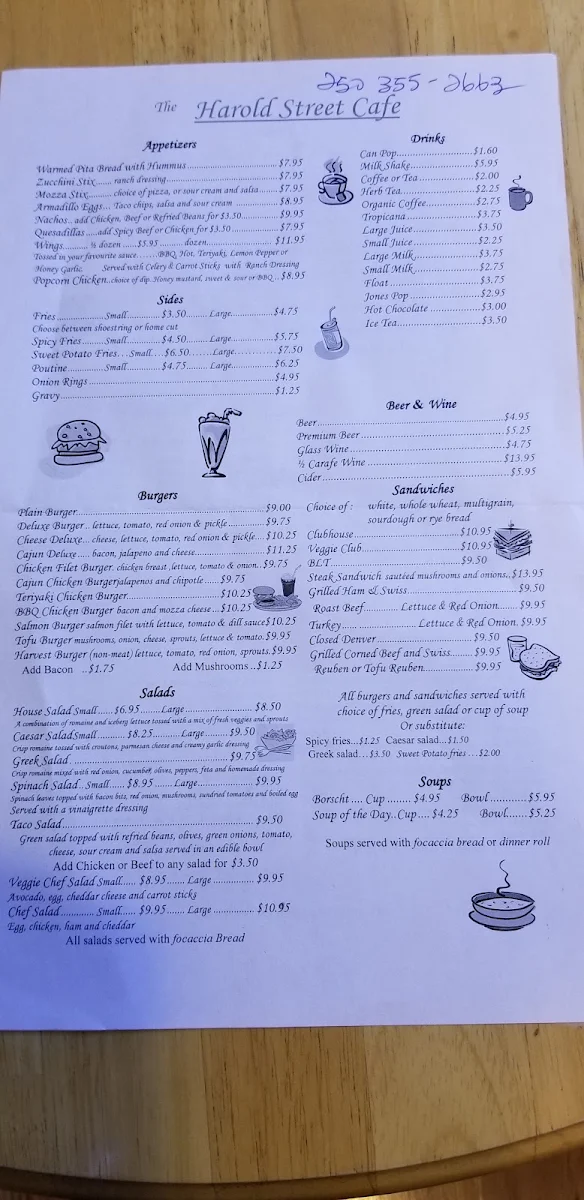 250 355-2663
The Harold Street Cafe
Appetizers
Warmed Pita Bread with Hummus....$7.95
Zucchini Stix...... ranch dressing....$7.95
Mozza Stix........ choice of pizza, or sour cream and salsa....$7.95
Armadillo Eggs... Taco chips, salsa and sour cream ....$8.95
Nachos.. add Chicken, Beef or Refried Beans for $3.50....$9.95
Quesadillas .....add Spicy Beef or Chicken for $3.50....$7.95
Wings......... ½ dozen .....$5.95 ........ dozen....$11.95
Tossed in your favourite sauce.......BBQ, Hot, Teriyaki, Lemon Pepper or
Honey Garlic. Served with Celery & Carrot Sticks with Ranch Dressing
Popcorn Chicken..choice of dip..Honey mustard, sweet & sour or BBQ...$8.95
Sides
Fries ................Small.........$3.50........Large............$4.75
Choose between shoestring or home cut
Spicy Fries......Small........$4.50.......Large............$5.75
Sweet Potato Fries...Small...$6.50......Large.........$7.50
Poutine............Small.........$4.75.......Large..........$6.25
Onion Rings....$4.95
Gravy....$1.25
Drinks
Can Pop....$1.60
Milk Shake....$5.95
Coffee or Tea....$2.00
Herb Tea....$2.25
Organic Coffee....$2.75
Tropicana....$3.75
Large Juice....$3.50
Small Juice....$2.25
Large Milk....$3.75
Small Milk....$2.75
Float....$3.75
Jones Pop....$2.95
Hot Chocolate....$3.00
Ice Tea....$3.50
Beer & Wine
Beer....$4.95
Premium Beer....$5.25
Glass Wine....$4.75
½ Carafe Wine....$13.95
Cider....$5.95
Burgers
Plain Burger....$9.00
Deluxe Burger.. lettuce, tomato, red onion & pickle....$9.75
Cheese Deluxe... cheese, lettuce, tomato, red onion & pickle....$10.25
Cajun Deluxe .... bacon, jalapeno and cheese....$11.25
Chicken Filet Burger. chicken breast ,lettuce, tomato & onion..$9.75
Cajun Chicken Burgerjalapenos and chipotle.....$9.75
Teriyaki Chicken Burger....$10.25
BBQ Chicken Burger bacon and mozza cheese...$10.25
Salmon Burger salmon filet with lettuce, tomato & dill sauce$10.25
Tofu Burger mushrooms, onion, cheese, sprouts, lettuce & tomato.$9.95
Harvest Burger (non-meat) lettuce, tomato, red onion, sprouts.$9.95
Add Bacon ..$1.75 Add Mushrooms ..$1.25
Sandwiches
Choice of : white, whole wheat, multigrain,
sourdough or rye bread
Clubhouse....$10.95
Veggie Club....$10.95
BLT....$9.50
Steak Sandwich sautéed mushrooms and onions..$13.95
Grilled Ham & Swiss....$9.50
Roast Beef.......... Lettuce & Red Onion.....$9.95
Turkey.................. Lettuce & Red Onion. $9.95
Closed Denver....$9.50
Grilled Corned Beef and Swiss....$9.95
Reuben or Tofu Reuben....$9.95
All burgers and sandwiches served with
choice of fries, green salad or cup of soup
Or substitute:
Spicy fries...$1.25 Caesar salad...$1.50
Greek salad...$3.50 Sweet Potato fries ...$2.00
Salads
House Salad Small......$6.95.......Large....$8.50
A combination of romaine and iceberg lettuce tossed with a mix of fresh veggies and sprouts
Caesar SaladSmall.......$8.25.......Large....$9.50
Crisp romaine tossed with croutons, parmesan cheese and creamy garlic dressing
Greek Salad....$9.75
Crisp romaine mixed with red onion, cucumber, olives, peppers, feta and homemade dressing
Spinach Salad...Small ...... $8.95 .......Large....$9.95
Spinach leaves topped with bacon bits, red onion, mushrooms, sundried tomatoes and boiled egg
Served with a vinaigrette dressing
Taco Salad....$9.50
Green salad topped with refried beans, olives, green onions, tomato,
cheese, sour cream and salsa served in an edible bowl
Add Chicken or Beef to any salad for $3.50
Veggie Chef Salad Small..... $8.95 ....... Large ....$9.95
Avocado, egg, cheddar cheese and carrot sticks
Chef Salad............... Small...... $9.95 ....... Large ....$10.95
Egg, chicken, ham and cheddar
All salads served with focaccia Bread
Soups
Borscht .... Cup ........ $4.95 Bowl...........$5.95
Soup of the Day..Cup.... $4.25 Bowl.......$5.25
Soups served with focaccia bread or dinner roll